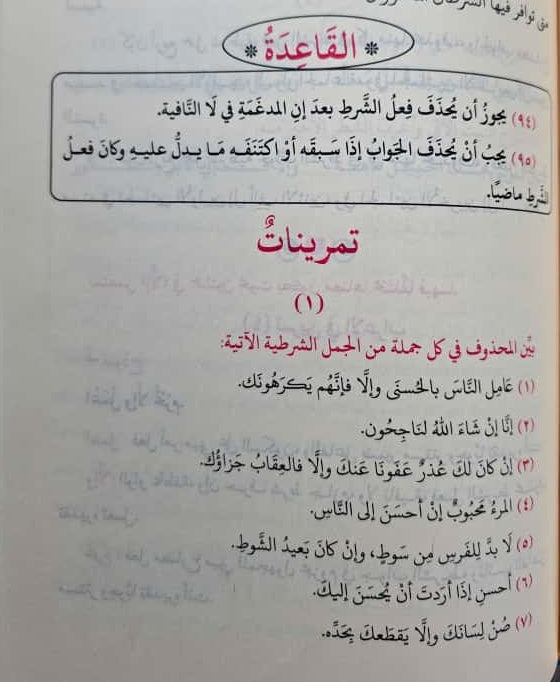 متى توافر فيها الشرطان
* القَاعِدَةُ *
(٩٤) يجوزُ أن يُحذَفَ فِعلُ الشَّرطِ بعدَ إنِ المدغَمَةِ في لَا النَّافية.
(٩٥) يجبُ أنْ يُحذَفَ الجَوابُ إذَا سَبقَه أوْ اكتَنَفَه مَا يدلُّ عليهِ وكانَ فعلُ
الشَّرطِ ماضيًا.
تمريناتٌ
(١)
بيِّن المحذوف في كل جملة من الجمل الشرطية الآتية:
(١) عَامِل النَّاسَ بالحُسنَى وإلَّا فإنَّهُم يَكرَهُونَك.
(٢) إنَّا إنْ شَاءَ اللهُ لنَاجِحُون.
(٣) إنْ كانَ لكَ عُذرٌ عَفَونَا عَنكَ وإلَّا فالعِقَابُ جَزاؤُك.
(٤) المرءُ مَحبُوبٌ إنْ أحسَنَ إلى النَّاسِ.
(٥) لَا بدَّ لِلفَرسِ مِن سَوطٍ، وإنْ كانَ بَعيدُ الشَّوطِ.
(٦) أحسِن إذَا أرَدتَ أنْ يُحسَنَ إليكَ.
(٧) صُنْ لِسَانَكَ وإلَّا يَقطَعكَ بِحَدِّه.